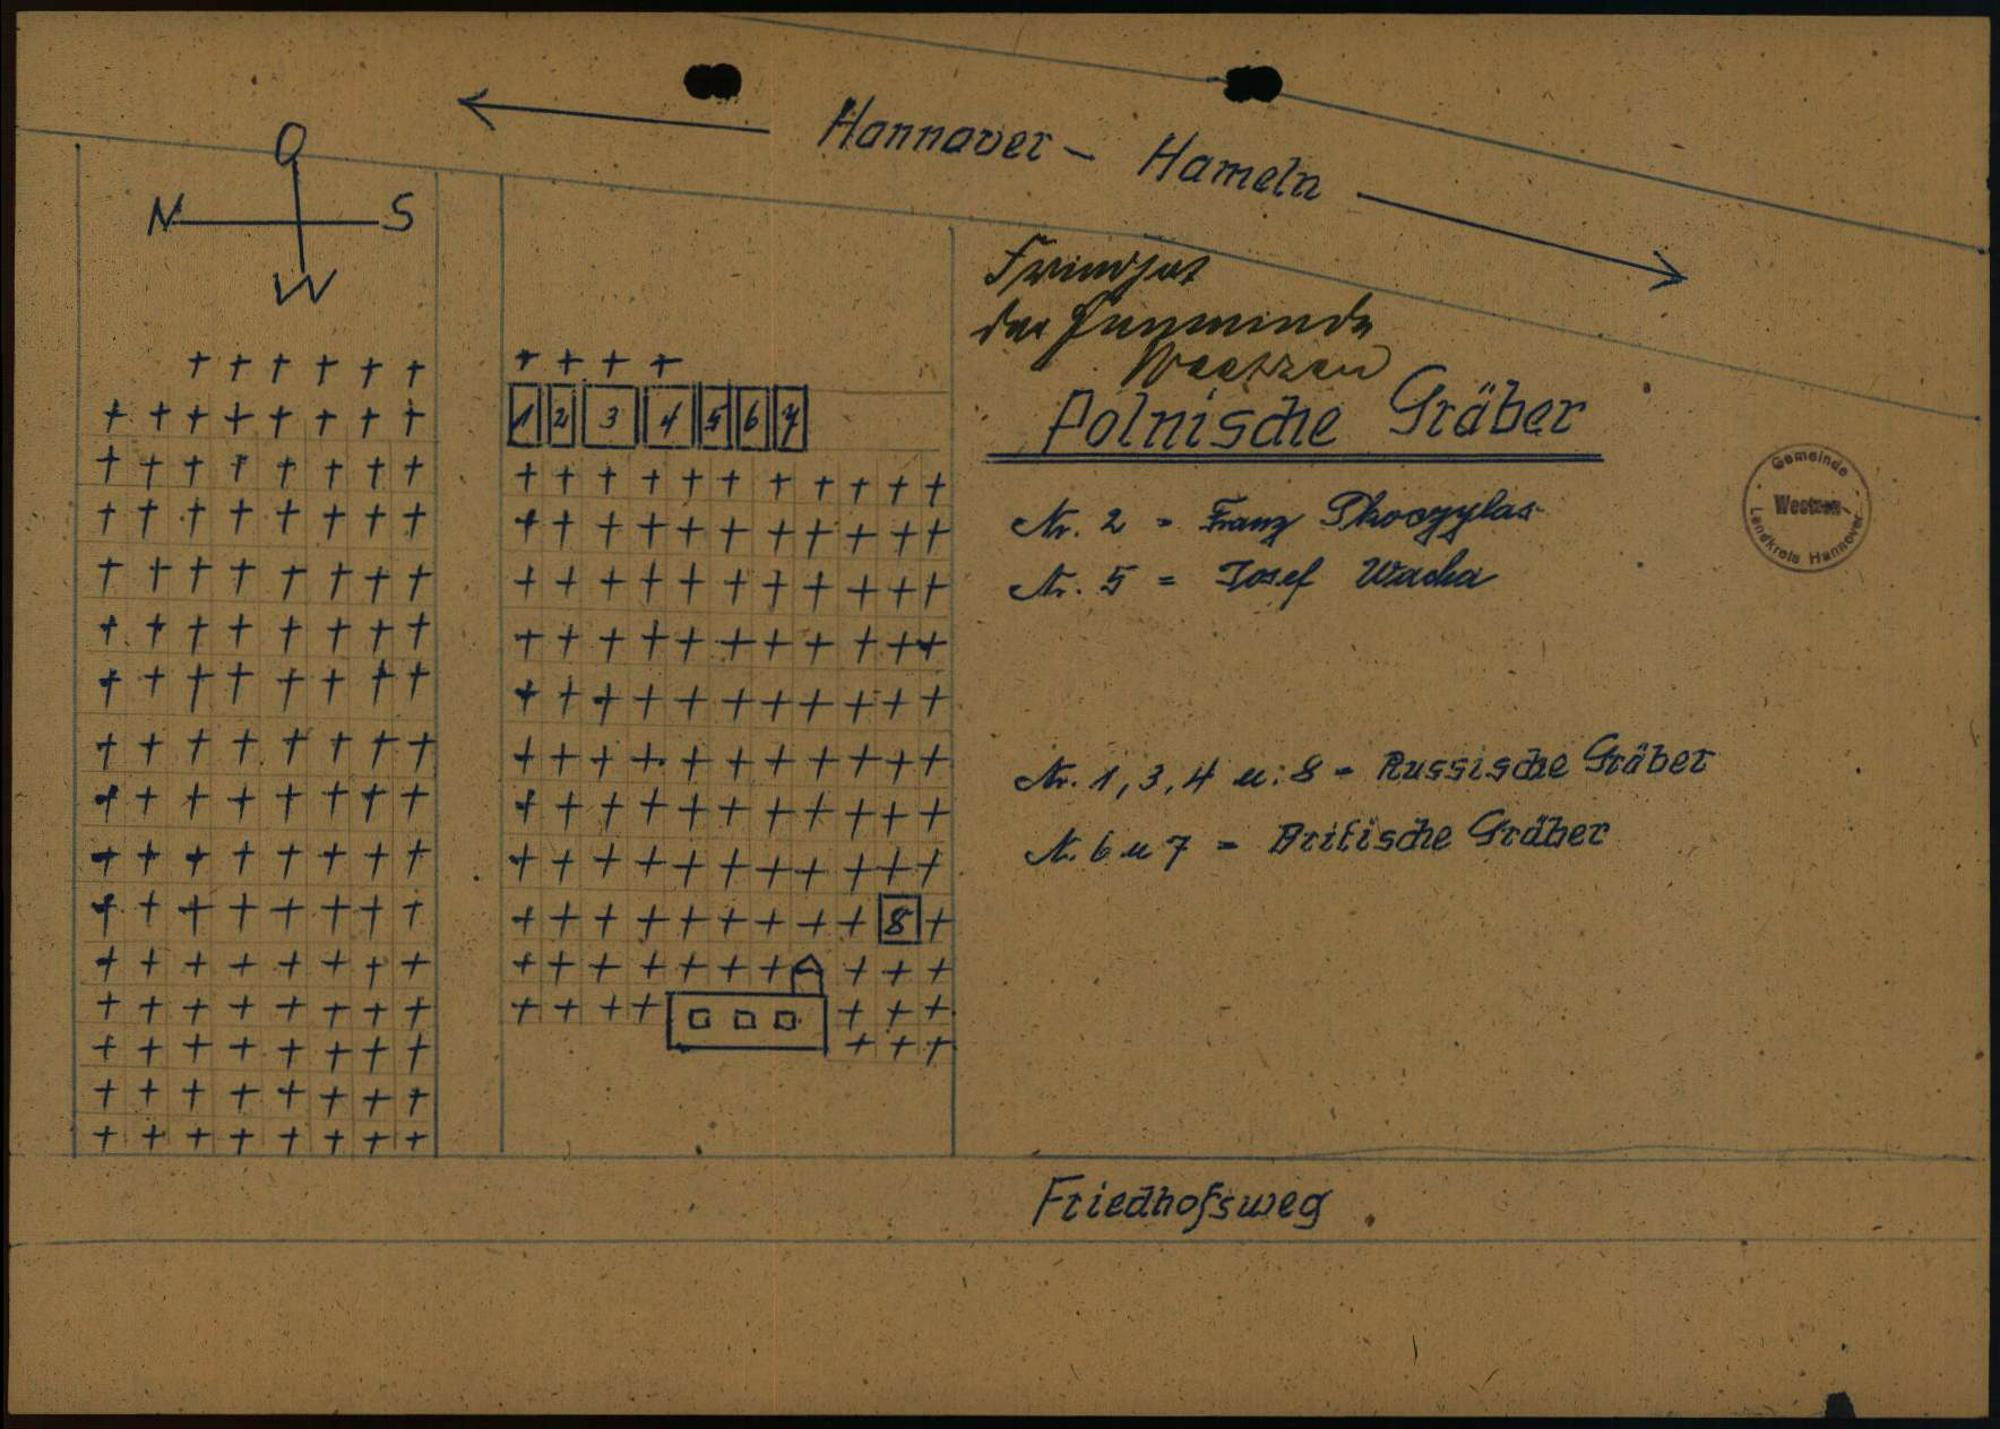 Hannover – Hameln
O
N S
W
Friedhof
der Gemeinde
Weetzen
1 2 3 4 5 6 7
Polnische Gräber
Nr. 2 = Franz
Nr. 5 = Josef Wacha
Gemeinde
Weetzen
Landkreis Hannover
Nr. 1, 3, 4 u. 8 = Russische Gräber
N. 6 u 7 = Britische Gräber
8
Friedhofsweg